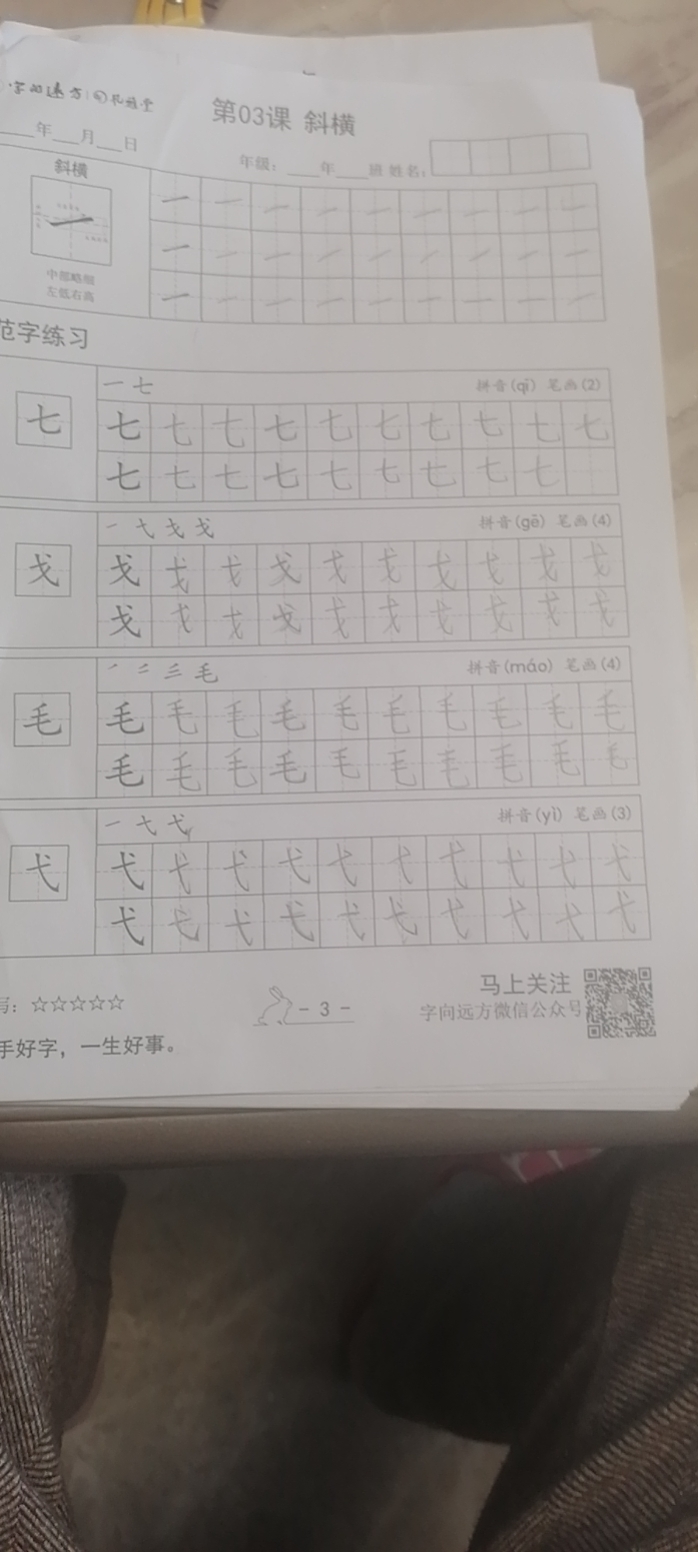 字向远方
___年___月___日
第03课 斜横
年级：___年___班 姓名：
斜横
中部略细
左低右高
范字练习
七
一 七
拼音(qī) 笔画(2)
七 七 七 七 七 七 七 七 七 七
七 七 七 七 七 七 七 七 七
戈
一 弋 戈 戈
拼音(gē) 笔画(4)
戈 戈 戈 戈 戈 戈 戈 戈 戈 戈
戈 戈 戈 戈 戈 戈 戈 戈 戈 戈
毛
毛
拼音(máo) 笔画(4)
毛 毛 毛 毛 毛 毛 毛 毛 毛 毛
毛 毛 毛 毛 毛 毛 毛 毛 毛 毛
弋
一 七 弋
拼音(yì) 笔画(3)
弋 弋 弋 弋 弋 弋 弋 弋 弋 弋
弋 弋 弋 弋 弋 弋 弋 弋 弋 弋
写：☆☆☆☆☆
- 3 -
马上关注
字向远方微信公众号
手好字，一生好事。